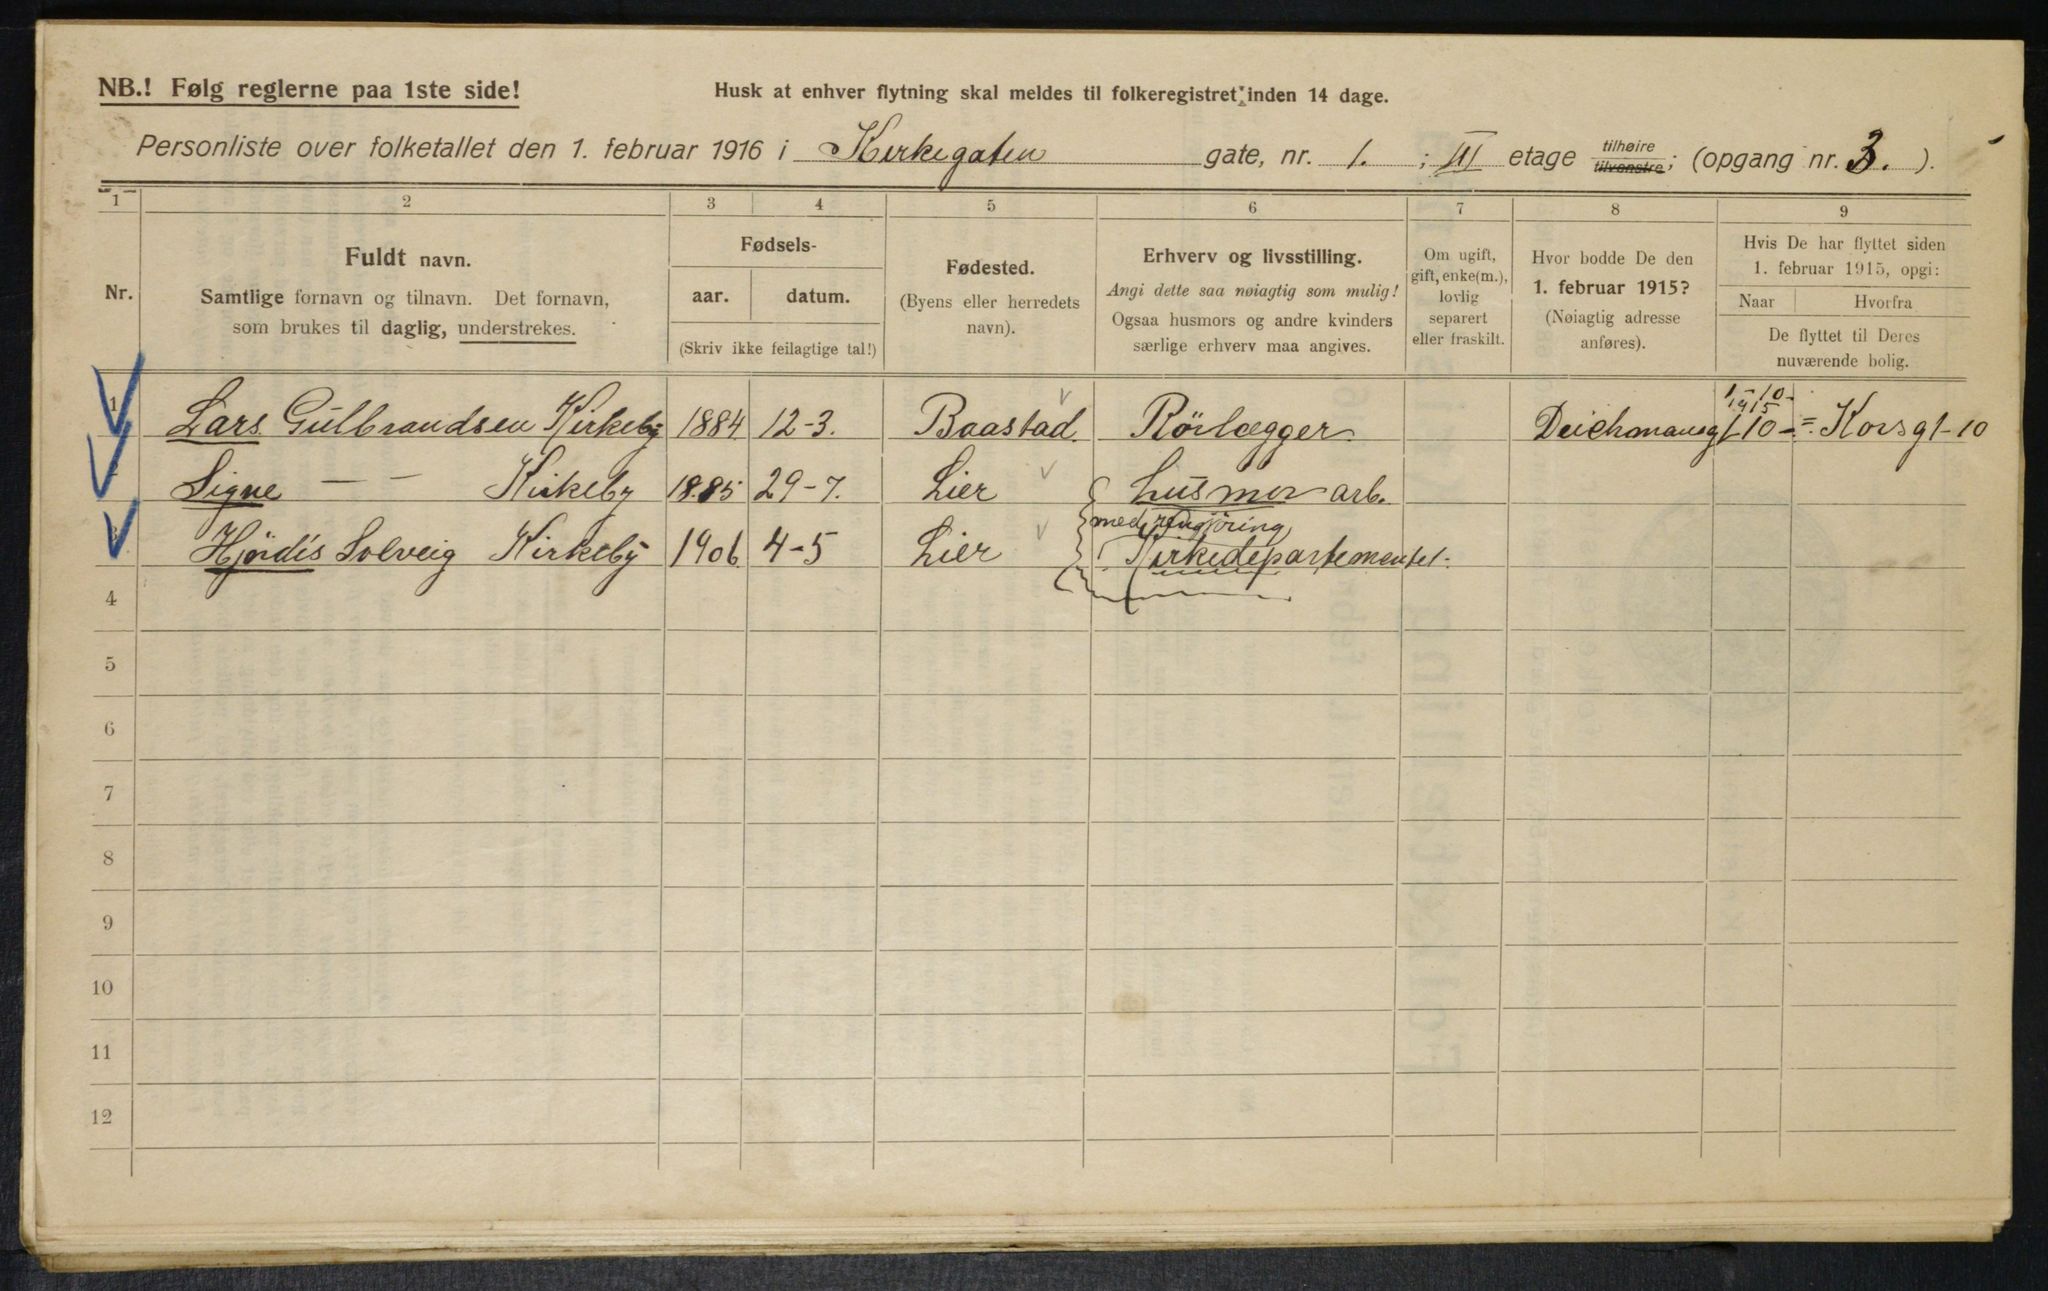 NB.! Følg reglerne paa 1ste side!
Husk at enhver flytning skal meldes til folkeregistret inden 14 dage.
Personliste over folketallet den 1. februar 1916 i Kirkegaten gate, nr. 1. ; III etage tilhøire tilvenstre; (opgang nr. 3. ).
1 2 3 4 5 6 7 8 9
Nr.
Fuldt navn.
Samtlige fornavn og tilnavn. Det fornavn,
som brukes til daglig, understrekes.
Fødsels-
aar. datum.
(Skriv ikke feilagtige tal!)
Fødested.
(Byens eller herredets
navn).
Erhverv og livsstilling.
Angi dette saa nøiagtig som mulig!
Ogsaa husmors og andre kvinders
særlige erhverv maa angives.
Om ugift,
gift, enke(m.),
lovlig
separert
eller fraskilt.
Hvor bodde De den
1. februar 1915?
(Nøiagtig adresse
anføres).
Hvis De har flyttet siden
1. februar 1915, opgi:
Naar Hvorfra
De flyttet til Deres
nuværende bolig.
1-10-
1915
1 Lars Gulbrandsen Kirkeby 1884 12-3. Baastad Rörlægger Deichmansgt 10 -.= Korsgt-10
Signe — — Kirkeby 1885 29-7. Lier husmor arb.
med rengjöring
Hjördis Solveig Kirkeby 1906 4-5 Lier i Kirkedepartementet.
4
5
6
7
8
9
10
11
12